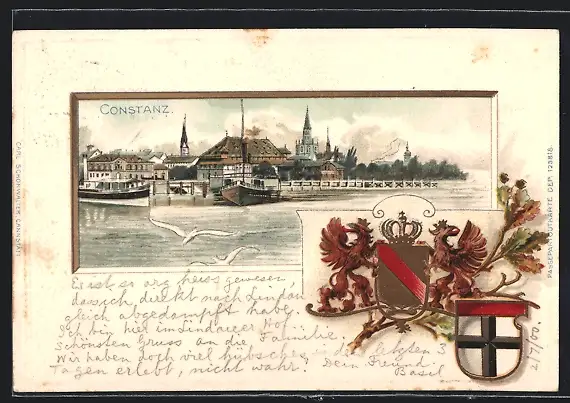 CONSTANZ.
CARL SCHÖNWALTER, CANNSTATT
PASSEPARTOUTKARTE DER 123818.
Es ist so arg heiss gewesen,
dass ich direkt nach Lindau
gleich abgedampft habe.
Ich bin hier im Lindauer Hof.
Schönsten Gruss an die Familie.
Wir haben doch viel hübsches in den letzten 3
Tagen erlebt, nicht wahr. Dein Freund
Basil
2/7/00.